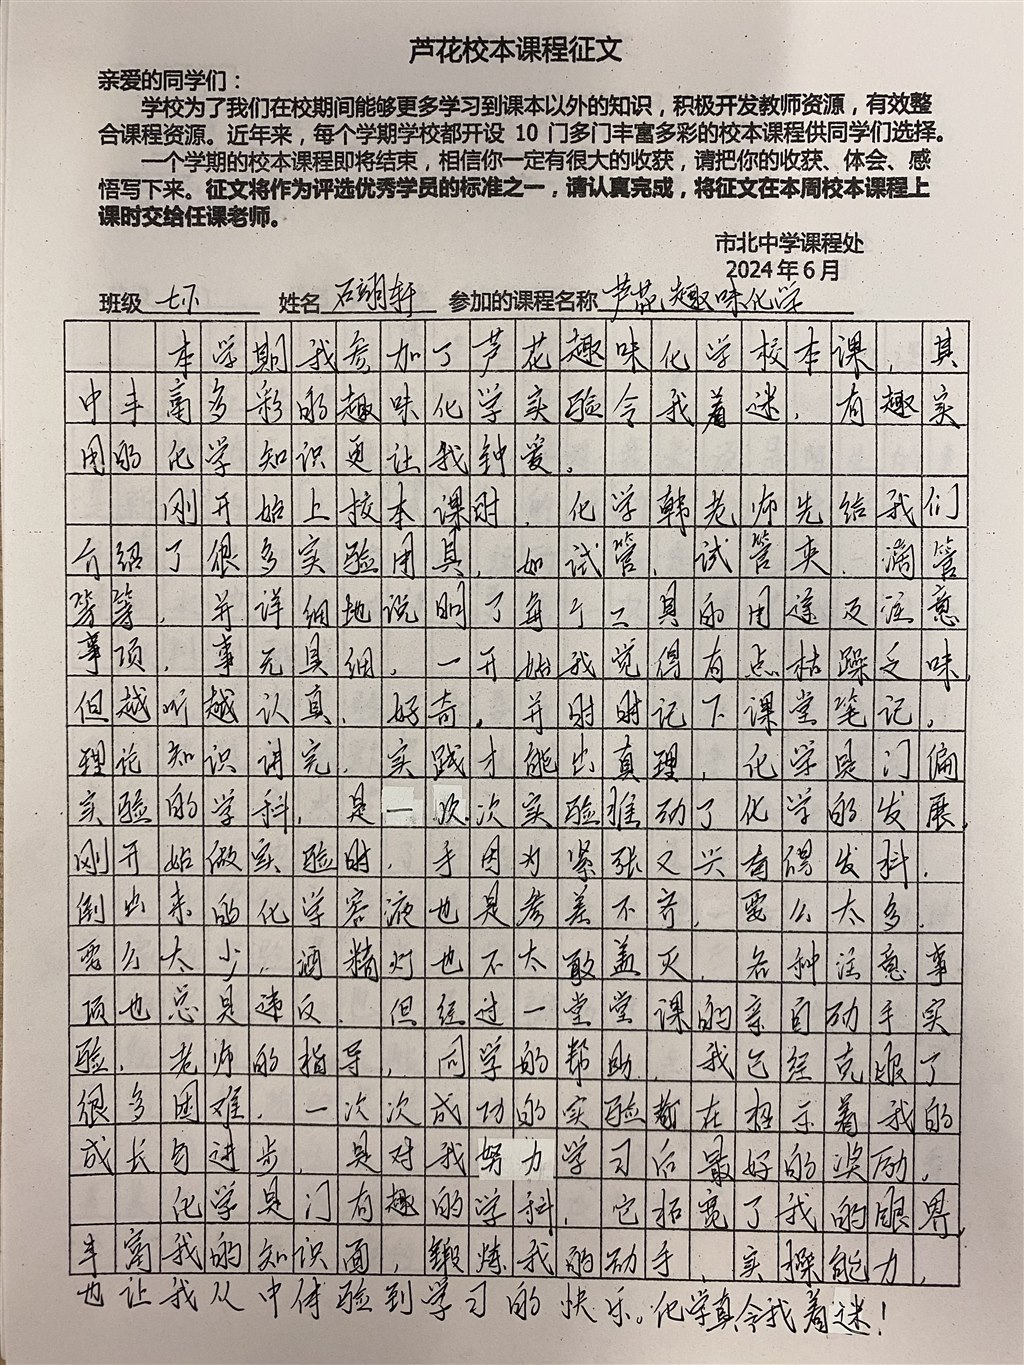 芦花校本课程征文
亲爱的同学们：
学校为了我们在校期间能够更多学习到课本以外的知识，积极开发教师资源，有效整
合课程资源。近年来，每个学期学校都开设 10 门多门丰富多彩的校本课程供同学们选择。
一个学期的校本课程即将结束，相信你一定有很大的收获，请把你的收获、体会、感
悟写下来。征文将作为评选优秀学员的标准之一，请认真完成，将征文在本周校本课程上
课时交给任课老师。
市北中学课程处
2024 年 6 月
班级 七下 姓名 石翊轩 参加的课程名称 芦花趣味化学
本学期我参加了芦花趣味化学校本课，其
中丰富多彩的趣味化学实验令我着迷，有趣实
用的化学知识更让我钟爱。
刚开始上校本课时，化学韩老师先给我们
介绍了很多实验用具，如试管、试管夹、滴管
等等，并详细地说明了每个工具的用途及注意
事项，事无具细，一开始我觉得有点枯躁乏味，
但越听越认真、好奇，并时时记下课堂笔记。
理论知识讲完，实践才能出真理，化学是门偏
实验的学科，是一次次实验推动了化学的发展，
刚开始做实验时，手因为紧张又兴奋得发抖，
倒出来的化学溶液也是参差不齐，要么太多，
要么太少，酒精灯也不太敢盖灭，各种注意事
项也总是违反，但经过一堂堂课的亲自动手实
验，老师的指导，同学的帮助，我已经克服了
很多困难，一次次成功的实验都在揭示着我的
成长与进步，是对我努力学习后最好的奖励。
化学是门有趣的学科，它拓宽了我的眼界，
丰富我的知识面，锻炼我的动手、实操能力，
也让我从中体验到学习的快乐。化学真令我着迷！